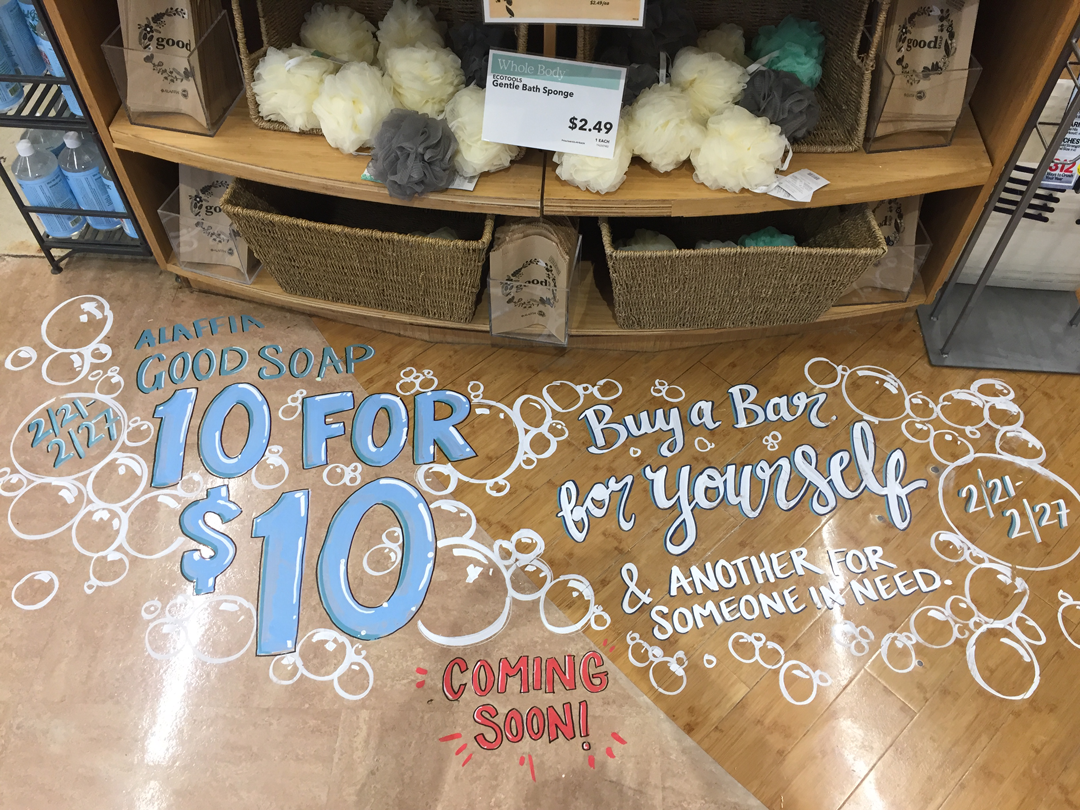 $2.49/ea
good
good
Whole Body
ECOTOOLS
Gentle Bath Sponge
$2.49
1 EACH
good
$12
ALAFFIA
GOOD SOAP
10 FOR
$10
2/21-
2/27
Buy a Bar
for yourself
& ANOTHER FOR
SOMEONE IN NEED.
2/21-
2/27
COMING
SOON!